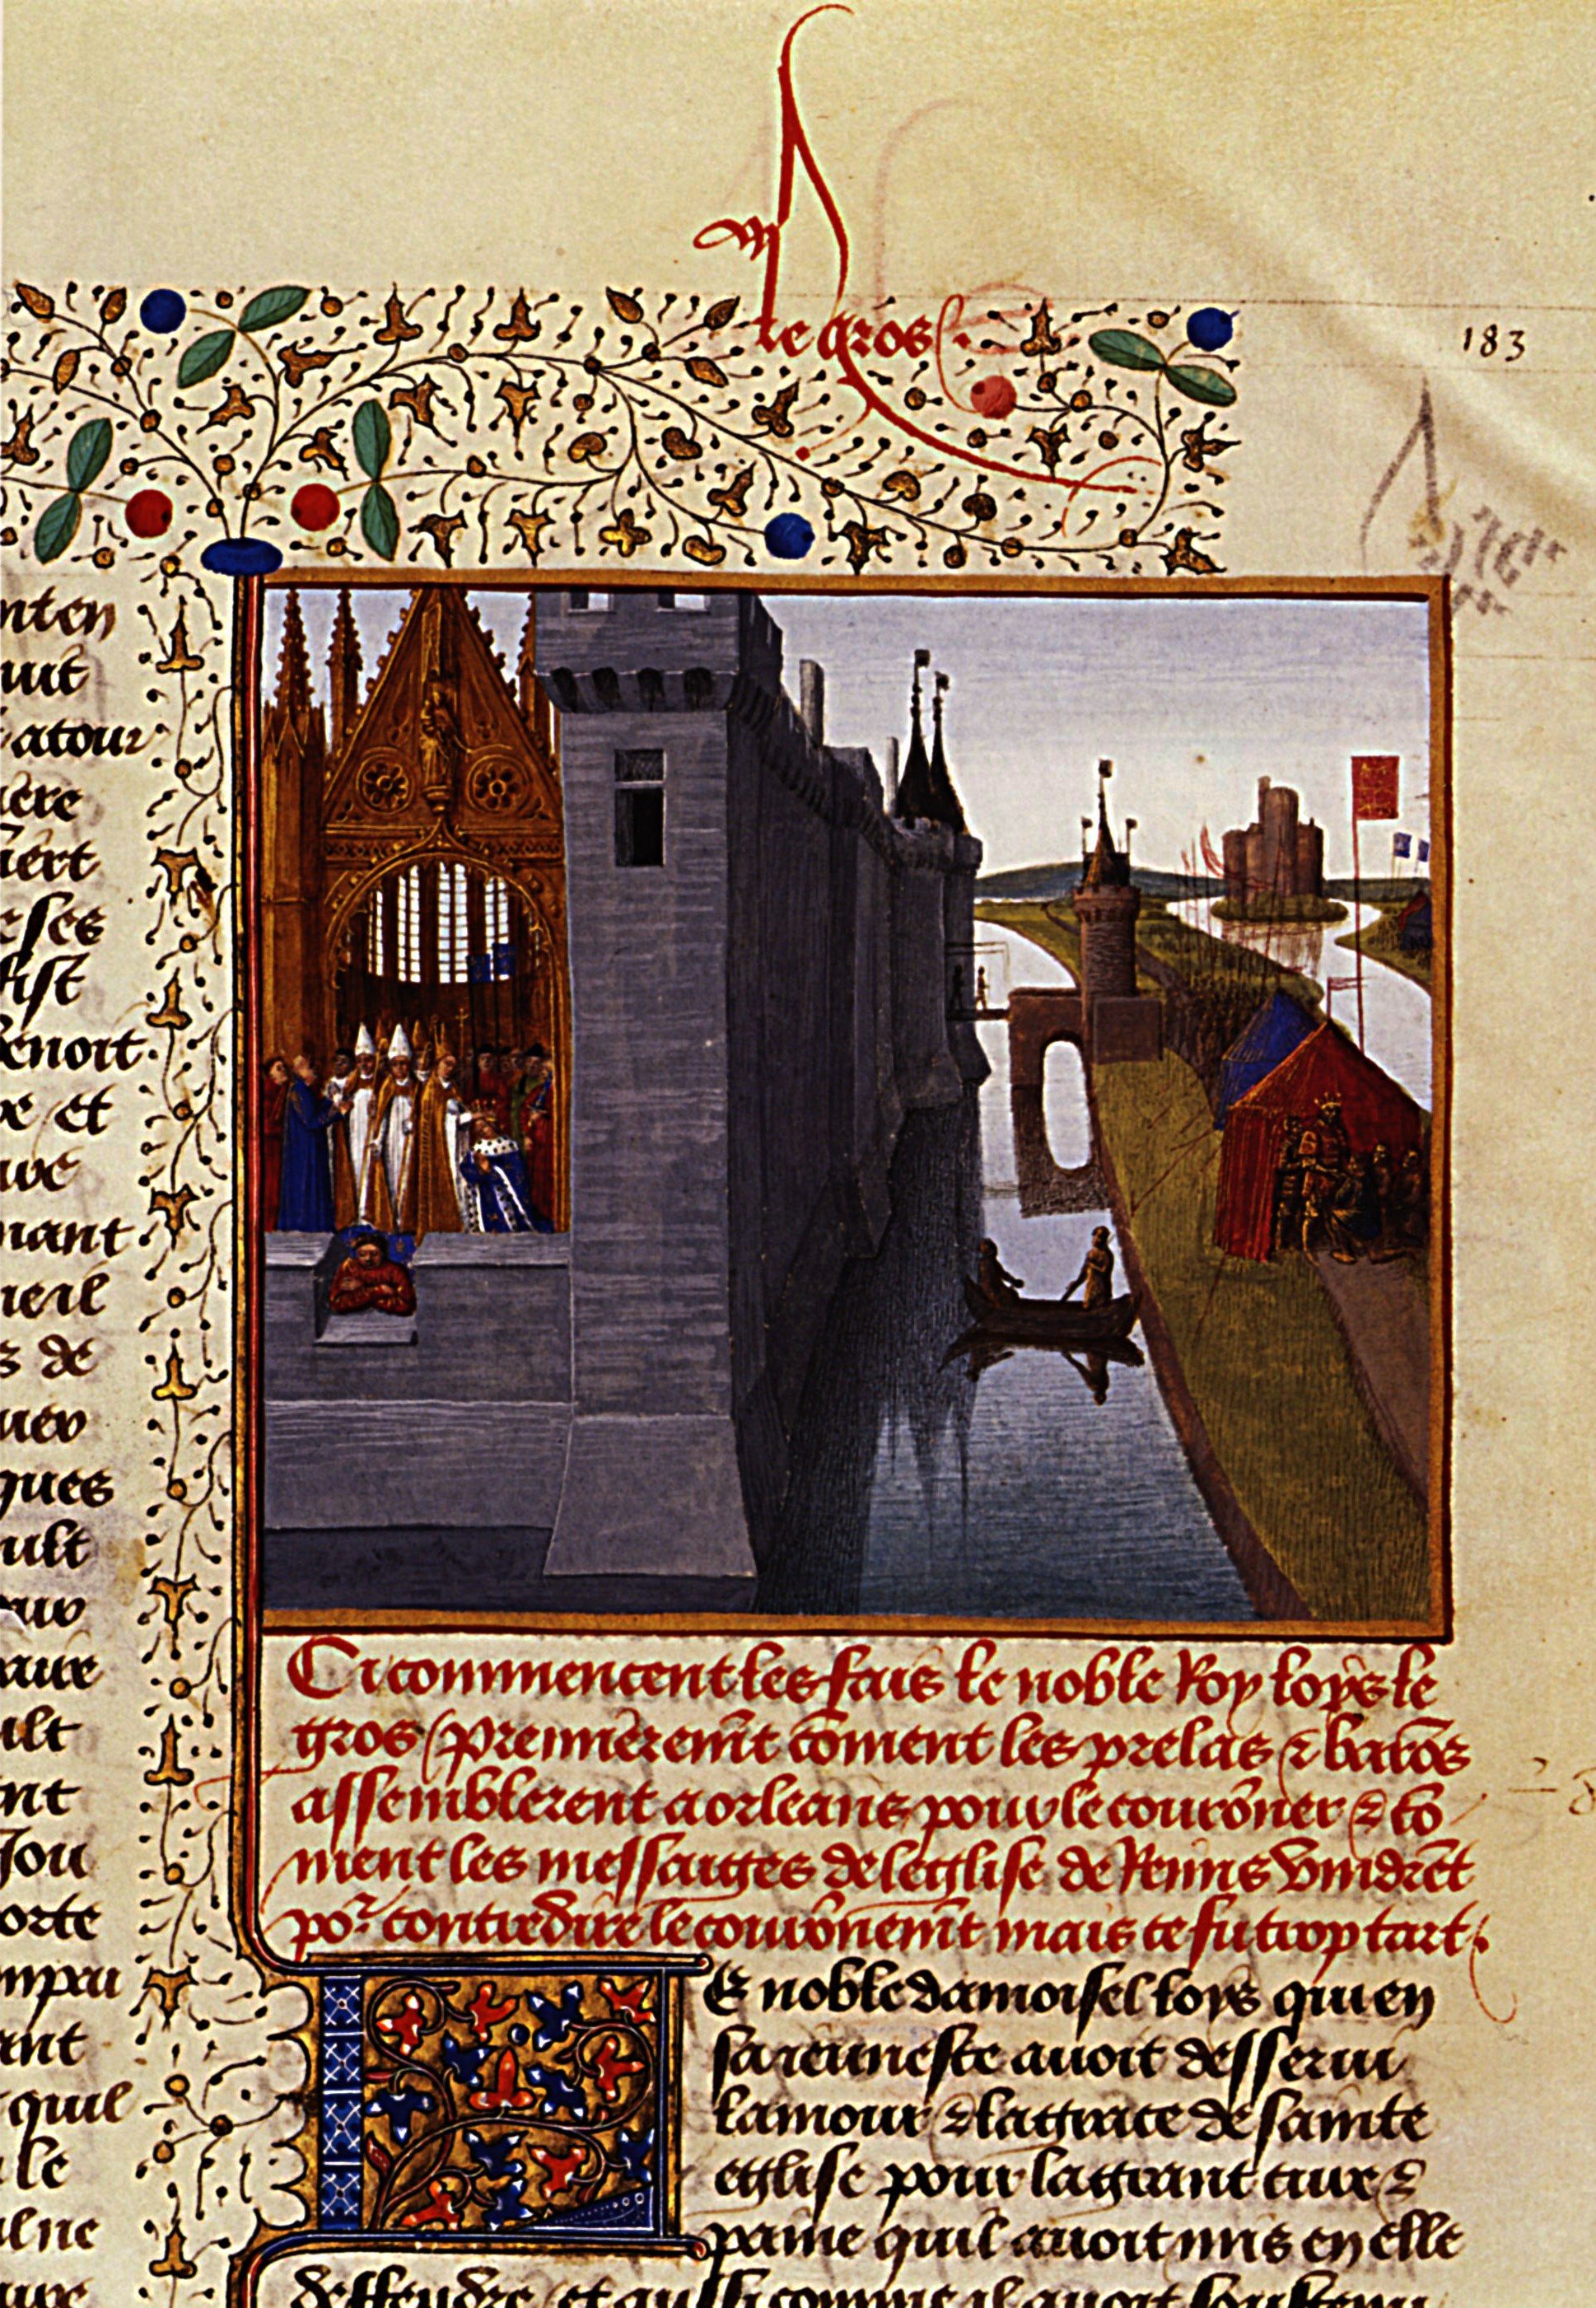 le gros
183
nten
uit
atour
iere
iert
e ses
fist
benoit
ve et
uve
mant
ieil
s de
ques
ult
aux
ult
ent
Jou
orte
mpai
ant
quil
le
alne
Ci commencent les fais le noble Roy loys le
gros / premierem̄t cōment les prelas ⁊ barōs
assemblerent a orleans pour le courōner ⁊ cō
ment les messaiges de leglise de Reims vindrēt
po᷑ contredire le courōnem̄t mais ce fu trop tart.
Le noble damoisel loys qui en
sa ieunesce auoit desserui
lamour ⁊ la grace de sainte
eglise pour la grant cure ⁊
paine quil auoit mis en elle
deffendre et aussi comme il auoit soustenu